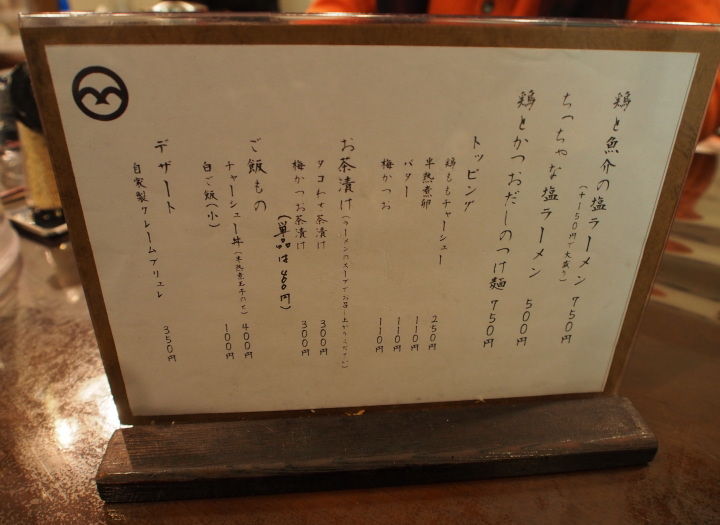 鶏と魚介の塩ラーメン 750円
(+150円で大盛り)
ちっちゃな塩ラーメン 500円
鶏とかつおだしのつけ麺 750円
トッピング
鶏ももチャーシュー 250円
半熟煮卵 110円
バター 110円
梅かつお 110円
お茶漬け(ラーメンのスープでお召し上がりください)
タコわさ茶漬け 300円
梅かつお茶漬け 300円
(単品は400円)
ご飯もの
チャーシュー丼(半熟煮玉子のせ) 400円
白ご飯(小) 100円
デザート
自家製クレームブリュレ 350円